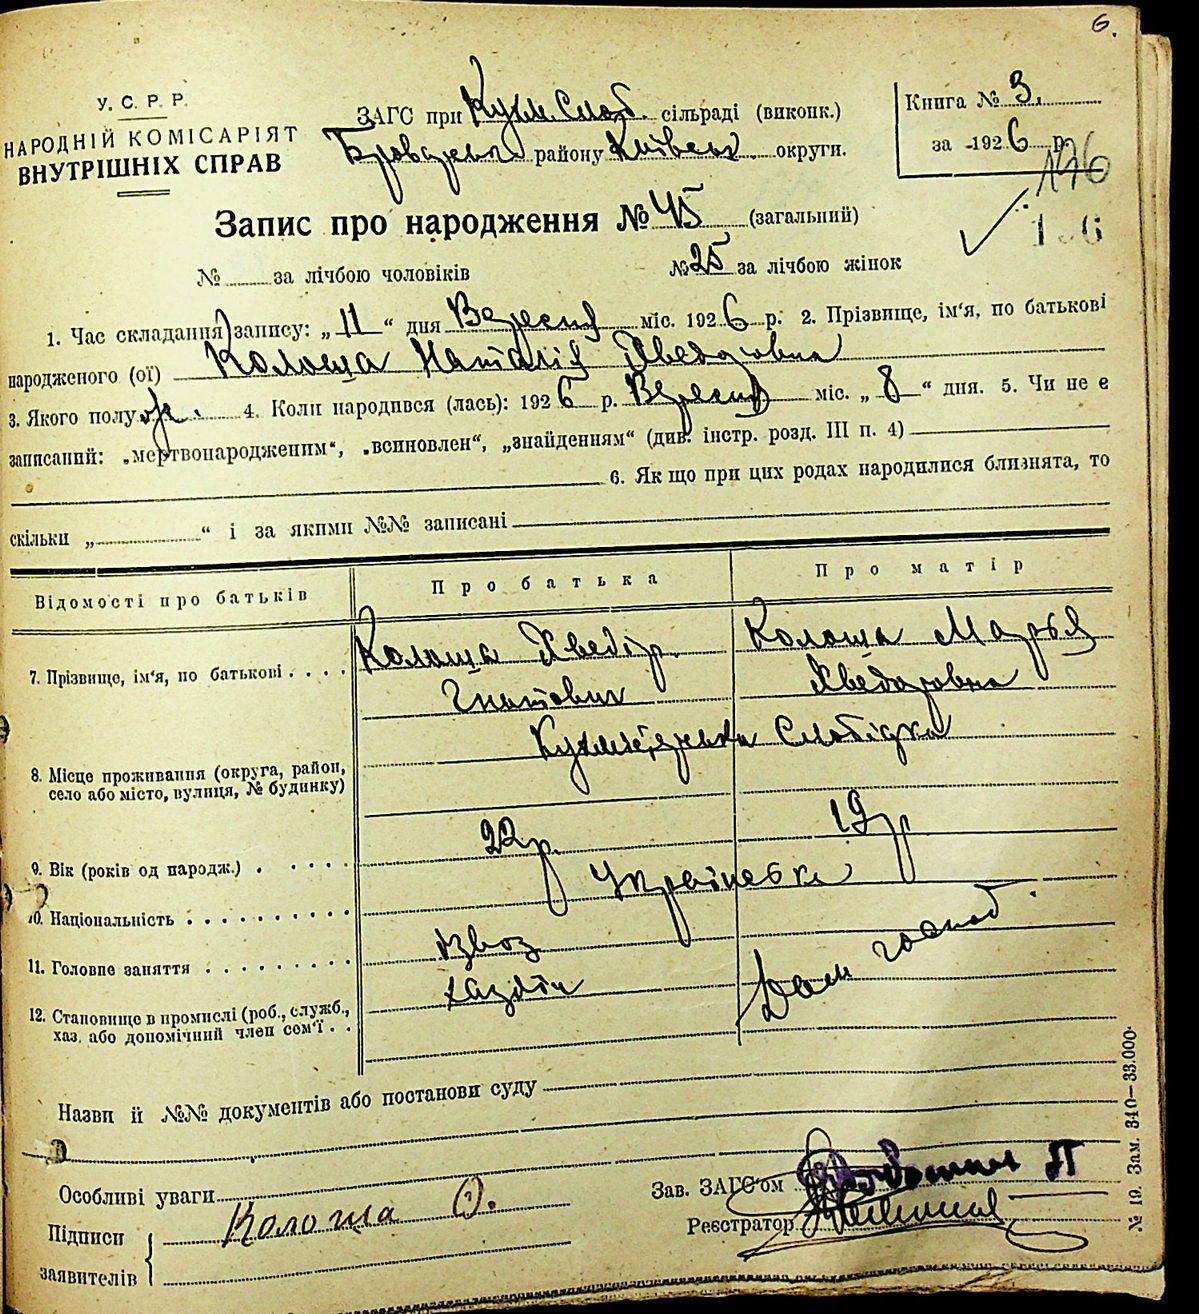 6.
У. С. Р. Р.
НАРОДНІЙ КОМІСАРІЯТ
ВНУТРІШНІХ СПРАВ
ЗАГС при Кухм. Слоб. сільраді (виконк.)
Броварськ району Київськ. округи.
Книга № 3.
за 1926 р.
136
Запис про народження № 45 (загальний)
№ за лічбою чоловіків № 25 за лічбою жінок
1. Час складання запису: „ 11 “ дня Вересня міс. 1926 р. 2. Прізвище, ім‘я, по батькові
народженого (ої) Колоша Наталія Хведоровна
3. Якого полу ж. 4. Коли народився (лась): 1926 р. Вересня міс. „ 8 “ дня. 5. Чи не є
записаний: „мертвонародженим“, „всиновлен“, „знайденням“ (див. інстр. розд. III п. 4)
6. Як що при цих родах народилися близнята, то
скільки „ “ і за якими №№ записані
Відомості про батьків Про батька Про матір
7. Прізвище, ім‘я, по батькові . . . . Колоша Хведір. Колоша Марья
Гнатович Хведоровна
8. Місце проживання (округа, район, село або місто, вулиця, № будинку) Кухмістрська Слобідка
9. Вік (років од народж.) . . . . . 22 р. 19 р
10. Національність . . . . . . . . . . Українська
11. Головне заняття . . . . . . . . . ізвоз Дом госпо
12. Становище в промислі (роб., служб., хазяїн
хаз. або допомічний член сем‘ї . .
Назви й №№ документів або постанови суду
Особливі уваги
Зав. ЗАГС‘ом
Підписи Колоша Ф. Реєстратор
заявителів
№ 19. Зам. 340—33.000.